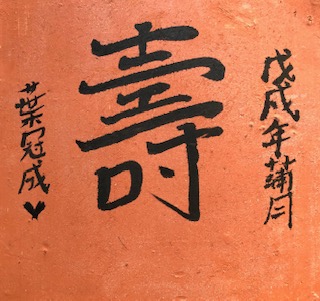 戊戌年蒲月
壽
葉冠成